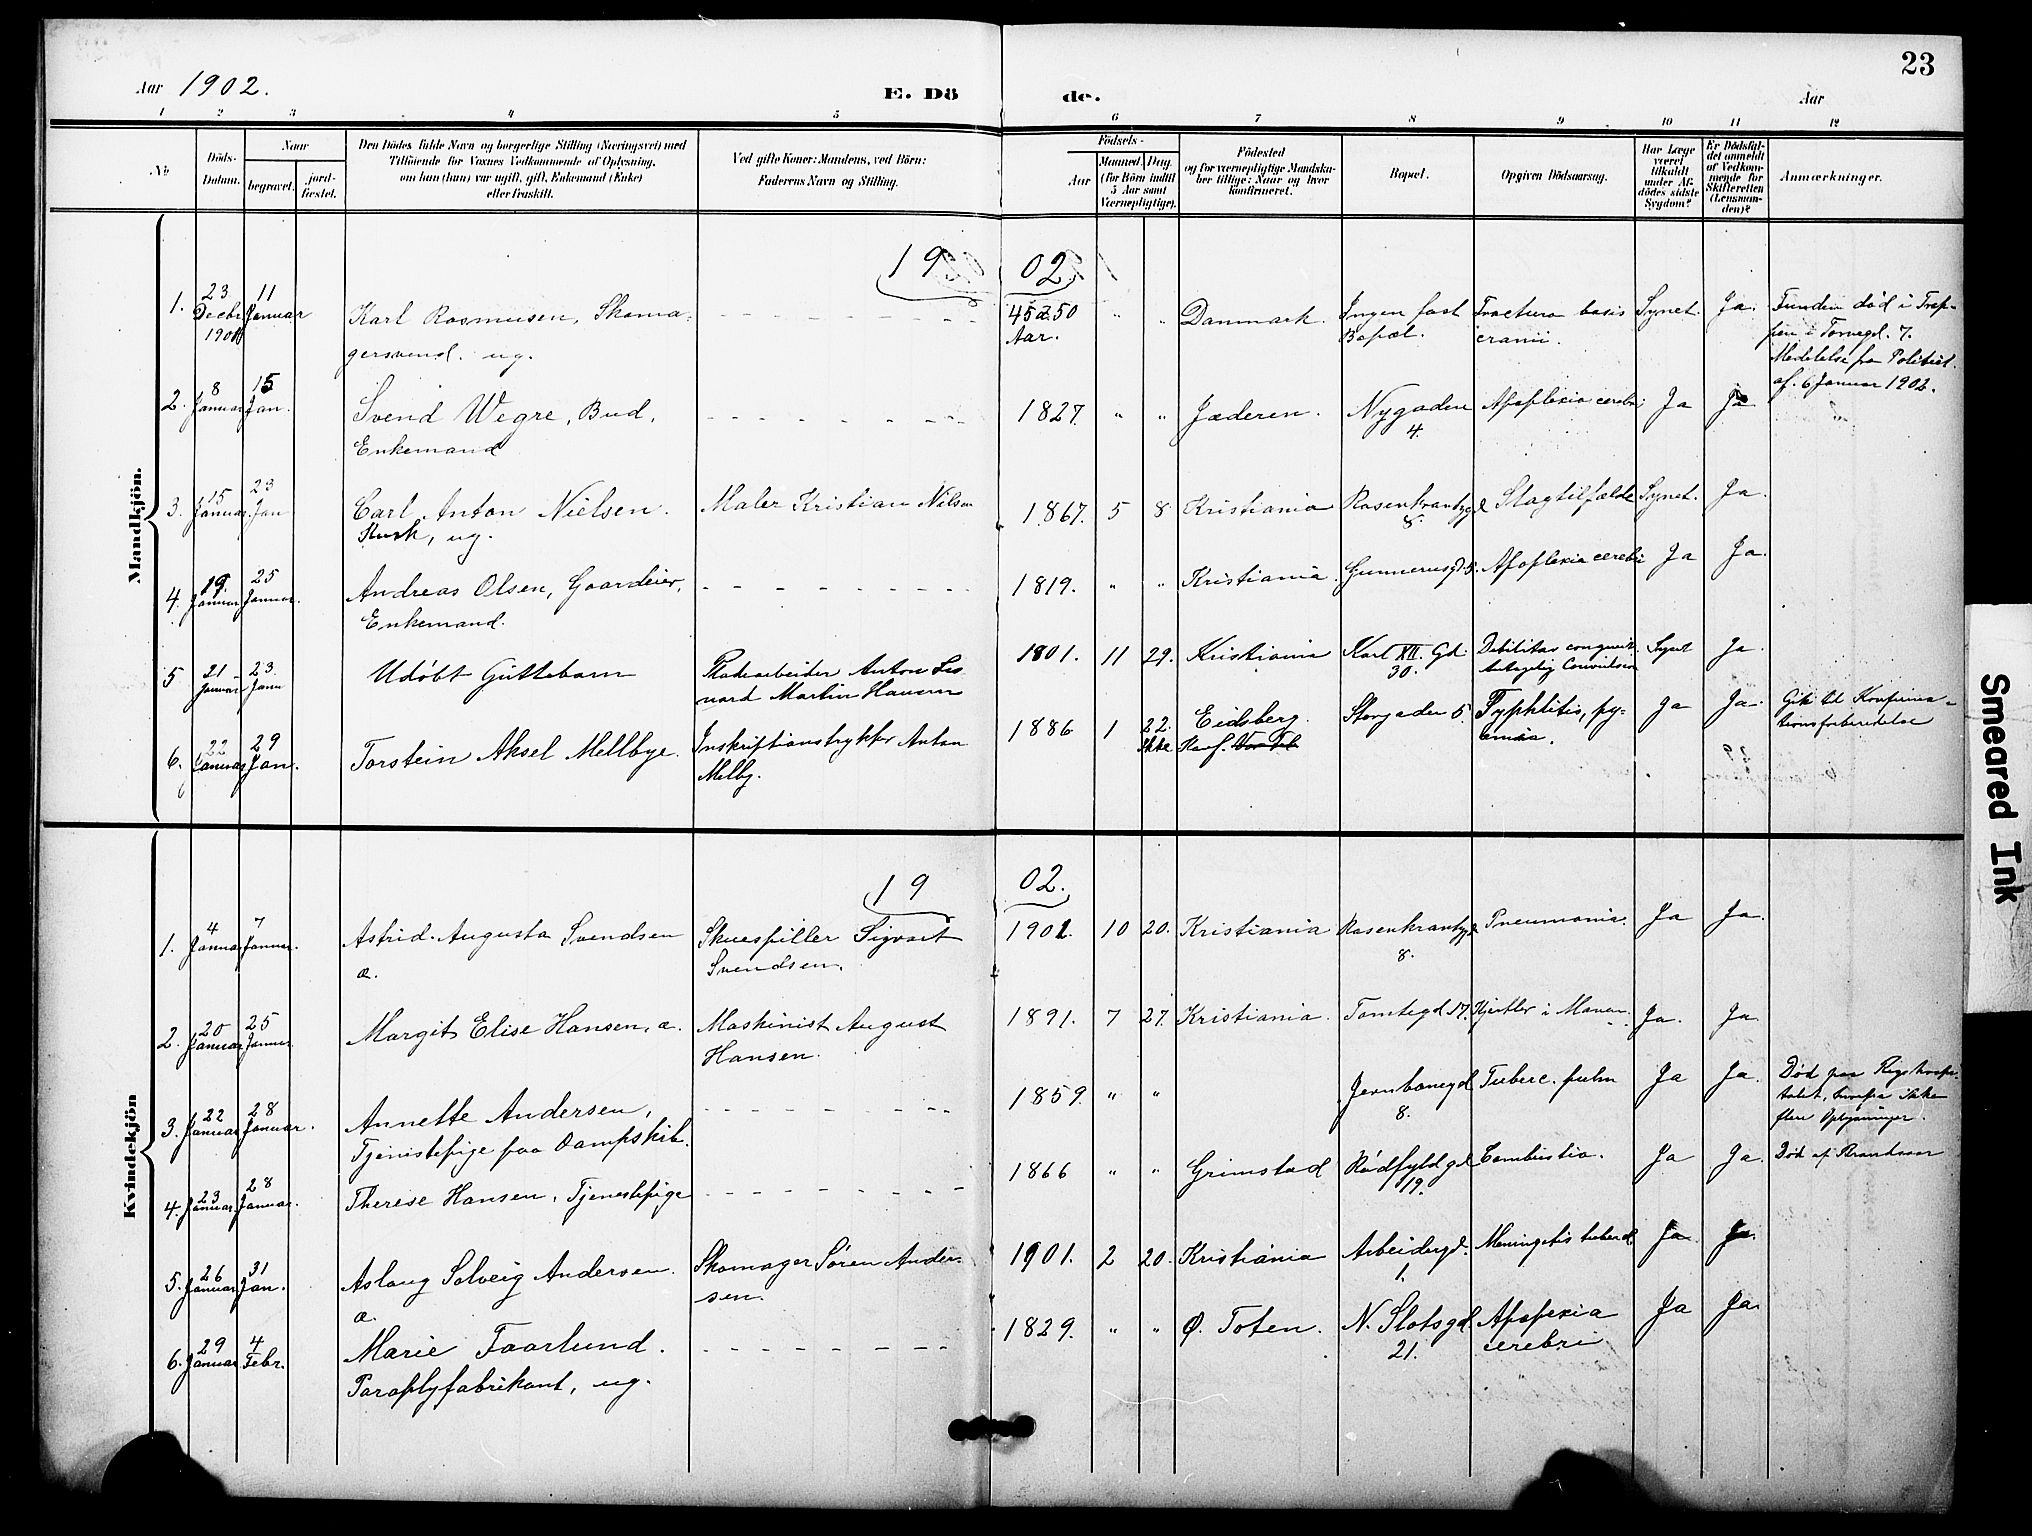 23
Aar 1902.
E. Dö
de.
Aar
1 2 3 4 5 6 7 8 9 10 11 12
No
Döds-
Datum.
Naar
begravet.
jord-
fæstet.
Den Dödes fulde Navn og borgerlige Stilling (Næringsvei) med
Tilföiende for Voxnes Vedkommende af Oplysning,
om han (hun) var ugift, gift, Enkemand (Enke)
eller fraskilt.
Ved gifte Koner: Mandens, ved Börn:
Faderens Navn og Stilling.
Födsels-
Aar
Maaned. Dag.
(for Börn indtil
5 Aar samt
Værnepligtige).
Födested
og for værnepligtige Mandska-
ber tillige: Naar og hvor
konfirmeret.
Bopæl.
Opgiven Dödsaarsag.
Har Læge
været
tilkaldt
under Af-
dödes sidste
Sygdom?
Er Dödsfal-
det anmeldt
af Vedkom-
mende for
Skifteretten
(Lensman-
den)?
Anmærkninger.
Mandkjön.
1902.
1. 23 Decbr 1901 11 Januar Karl Rasmusen, Skoma- 45 a 50 " " Danmark. Ingen fast Fractura basis Synet Ja. Funden död i Trap-
gersvend. ug. Aar. Bopæl. cranii. pen i Torvegd. 7.
Meddelelse fra Politiet
af 6 Januar 1902.
2. 8 Januar 15 Jan. Svend Wegre, Bud, 1827. " " Jæderen. Nygaden Apoplexia cerebri Ja Ja
Enkemand 4.
3. 15 Januar. 23 Jan Carl Anton Nielsen. Maler Kristian Nilsen 1867. 5 8 Kristiania Rosenkrantzgd Slagtilfælde Synet. Ja.
Kusk, ug. 8.
4. 19 Januar 25 Januar. Andreas Olsen, Gaardeier, 1819. " " Kristiania. Gunnerusgd 5. Apoplexia cerebri Ja Ja.
Enkemand.
5 21 Januar 23 Janu Udöbt Guttebarn Anton 1801. 11 29. Kristiania Karl XII. Gd. Debilitas Synet Ja
Martin Hansen 30.
6. 22 Januar 29 Jan. Torstein Aksel Mellbye. Inskriptionstrykker Anton 1886 1 22. Eidsberg. Storgaden 5. Typhlitis, py- Ja Ja. Gik til Konfirma-
Melby. Ikke Konf. æmia. tionsforberedelse
Kvindekjön
1902.
1. 4 Januar 7 Januar. Astrid Augusta Svendsen Skuespiller Sigvart 1901. 10 20. Kristiania Rosenkrantzgd Pneumonia. Ja Ja.
æ. Svendsen. 8.
2. 20 Januar 25 Januar. Margit Elise Hansen, æ. Maskinist August 1891. 7 27. Kristiania. Tomtegd 17. Kjertler i Maven. Ja. Ja
Hansen.
3. 22 Januar 28 Januar. Annette Andersen, 1859. " " Jernbanegd Tuberc. pulm Ja Ja. Død paa Rigshospi-
Tjenestepige paa Dampskib. 8. talet, hvorfra ikke
flere Oplysninger.
4. 23 Januar. 28 Januar. Therese Hansen, Tjenestepige 1866 " " Grimstad Rødfyldgd Combustio. Ja Ja. Død af Brandsaar
19.
5. 26 Januar 31 Jan. Aslaug Solveig Andersen. Skomager Sören Ander- 1901. 2 20. Kristiania Arbeidergd. Meningitis tubercl Ja Ja.
æ. sen. 1.
6. 29 Januar 4 Febr. Marie Faarlund. 1829. " " Ø. Toten. N. Slotsgd. Apoplexia Ja Ja.
Paraplyfabrikant, ug. 21. cerebri
Smeared Ink